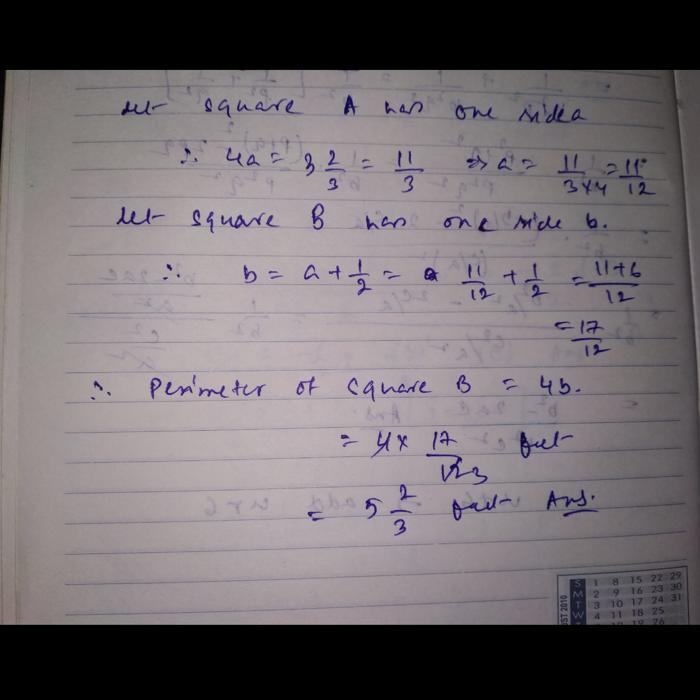 Let square A has one side a
∴ 4a = 3 2/3 = 11/3 ⇒ a = 11/3×4 = 11/12
Let square B has one side b.
∴ b = a + 1/2 = 11/12 + 1/2 = 11+6/12
= 17/12
∴ Perimeter of square B = 4b.
= 4 × 17/12 3 feet
= 5 2/3 feet Ans.
S 1 8 15 22 29
M 2 9 16 23 30
T 3 10 17 24 31
W 4 11 18 25
UST 2010